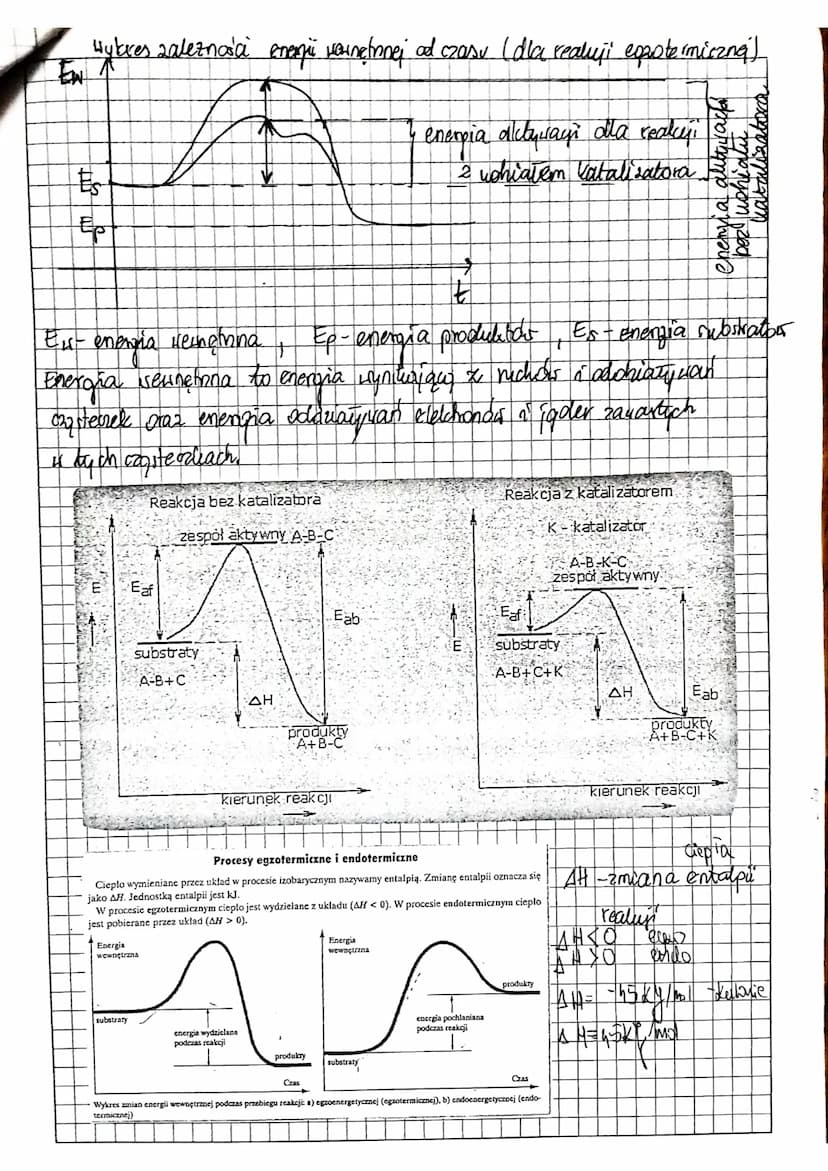 Wykres zależności energii wewnętrznej od czasu (dla reakcji egzotermicznej)
Ew
energia aktywacji dla reakcji
z udziałem katalizatora
energia aktywacji
bez udziału
katalizatora
Es
Ep
t
Ew - energia wewnętrzna, Ep - energia produktów, Es - energia substratów
Energia wewnętrzna to energia wynikająca z ruchów i oddziaływań
cząsteczek oraz energia oddziaływań elektronów i jąder zawartych
w tych cząsteczkach.
Reakcja bez katalizatora
zespół aktywny A-B-C
E
Eaf
Eab
substraty
A-B+C
ΔH
produkty
A+B-C
kierunek reakcji
Reakcja z katalizatorem
K - katalizator
A-B-K-C
zespół aktywny
Eaf
E
substraty
A-B+C+K
ΔH
Eab
produkty
A+B-C+K
kierunek reakcji
Procesy egzotermiczne i endotermiczne
Ciepło wymieniane przez układ w procesie izobarycznym nazywamy entalpią. Zmianę entalpii oznacza się
jako ΔH. Jednostką entalpii jest kJ.
W procesie egzotermicznym ciepło jest wydzielane z układu (ΔH < 0). W procesie endotermicznym ciepło
jest pobierane przez układ (ΔH > 0).
Energia
wewnętrzna
substraty
energia wydzielana
podczas reakcji
produkty
Czas
Energia
wewnętrzna
produkty
energia pochłaniana
podczas reakcji
substraty
Czas
Wykres zmian energii wewnętrznej podczas przebiegu reakcji: a) egzoenergetycznej (egzotermicznej), b) endoenergetycznej (endo-
termicznej)
ciepła
ΔH - zmiana entalpii
reakcji
ΔH<0 egzo
ΔH>0 endo
ΔH= -45 kJ/mol
ΔH=45kJ/mol